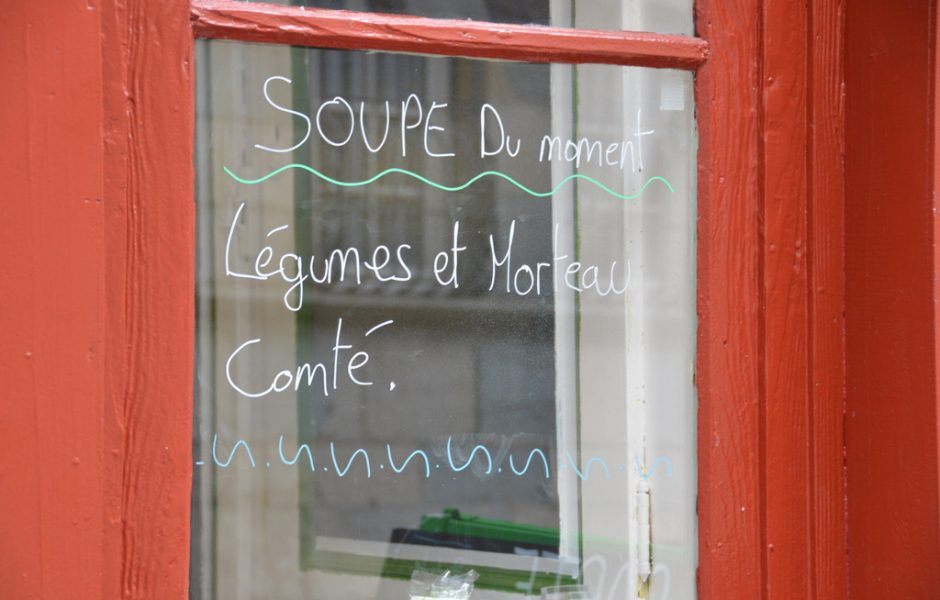 SOUPE Du moment
Légumes et Morteau
Comté.